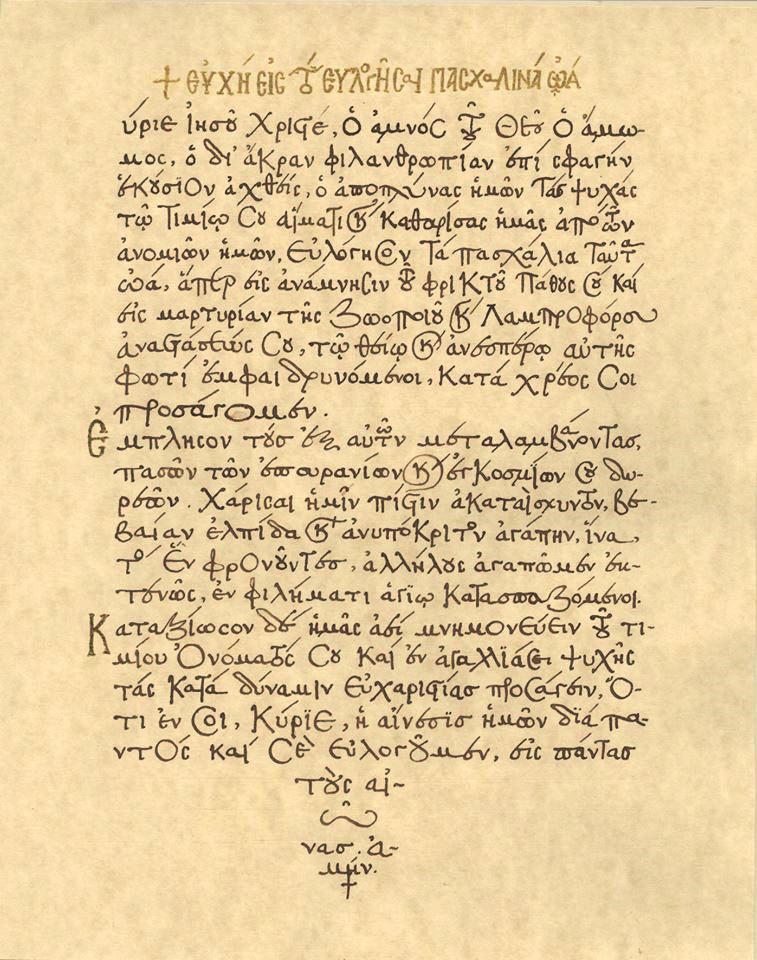 + ΕΥΧΗ ΕΙΣ ΤΟ ΕΥΛΟΓΗΣΑΙ ΠΑΣΧΑΛΙΝΑ ΩΑ
ύριε Ἰησοῦ Χριστέ, Ὁ ἀμνός τοῦ Θεοῦ Ὁ ἄμω-
μος, ὁ δι' ἄκραν φιλανθρωπίαν ἐπί σφαγήν
ἑκούσιον ἀχθείς, ὁ ἀποπλύνας ἡμῶν τάς ψυχάς
τῷ Τιμίῳ Σου αἵματι καί καθαρίσας ἡμᾶς ἀπό τῶν
ἀνομιῶν ἡμῶν, Εὐλόγησον τά πασχάλια ταῦτα
ὠά, ἅπερ εἰς ἀνάμνησιν τοῦ φρικτοῦ Πάθους Σου καί
εἰς μαρτυρίαν τῆς Ζωοποιοῦ καί Λαμπροφόρου
ἀναστάσεώς Σου, τῷ θείῳ καί ἀνεσπέρῳ αὐτῆς
φωτί ἐμφαιδρυνόμενοι, κατά χρέος Σοι
προσάγομεν.
Ἔμπλησον τούς ἐξ αὐτῶν μεταλαμβάνοντας,
πασῶν τῶν ἐπουρανίων καί ἐγκοσμίων Σου δω-
ρεῶν. Χάρισαι ἡμῖν πίστιν ἀκαταίσχυντον, βε-
βαίαν ἐλπίδα καί ἀνυπόκριτον ἀγάπην, ἵνα,
τό Ἕν φρονοῦντες, ἀλλήλους ἀγαπῶμεν ἐκ-
τενῶς, ἐν φιλήματι ἁγίῳ κατασπαζόμενοι.
Καταξίωσον δέ ἡμᾶς ἀεί μνημονεύειν τοῦ τι-
μίου Ὀνόματός Σου καί ἐν ἀγαλλιάσει ψυχῆς
τάς κατά δύναμιν εὐχαριστίας προσάγειν, Ὅ-
τι ἐν Σοι, Κύριε, ἡ αἴνεσις ἡμῶν διά πα-
ντός καί Σέ εὐλογοῦμεν, εἰς πάντας
τούς αἰ-
ῶ
νας. Ἀ-
μήν.